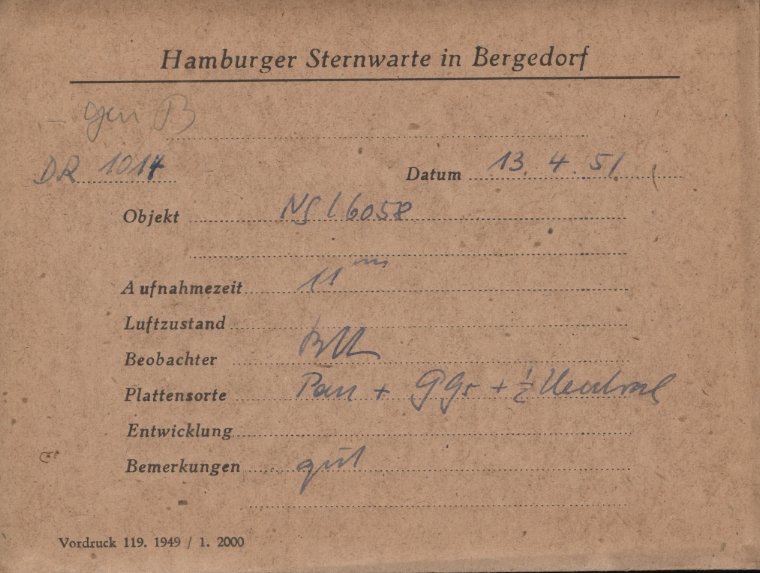 Hamburger Sternwarte in Bergedorf
DR 1014
Datum 13. 4. 51
Objekt NGC 6058
Aufnahmezeit 11 m
Luftzustand
Beobachter
Plattensorte Pan + GG + ½ Neutral
Entwicklung
Bemerkungen gut
Vordruck 119. 1949 / 1. 2000